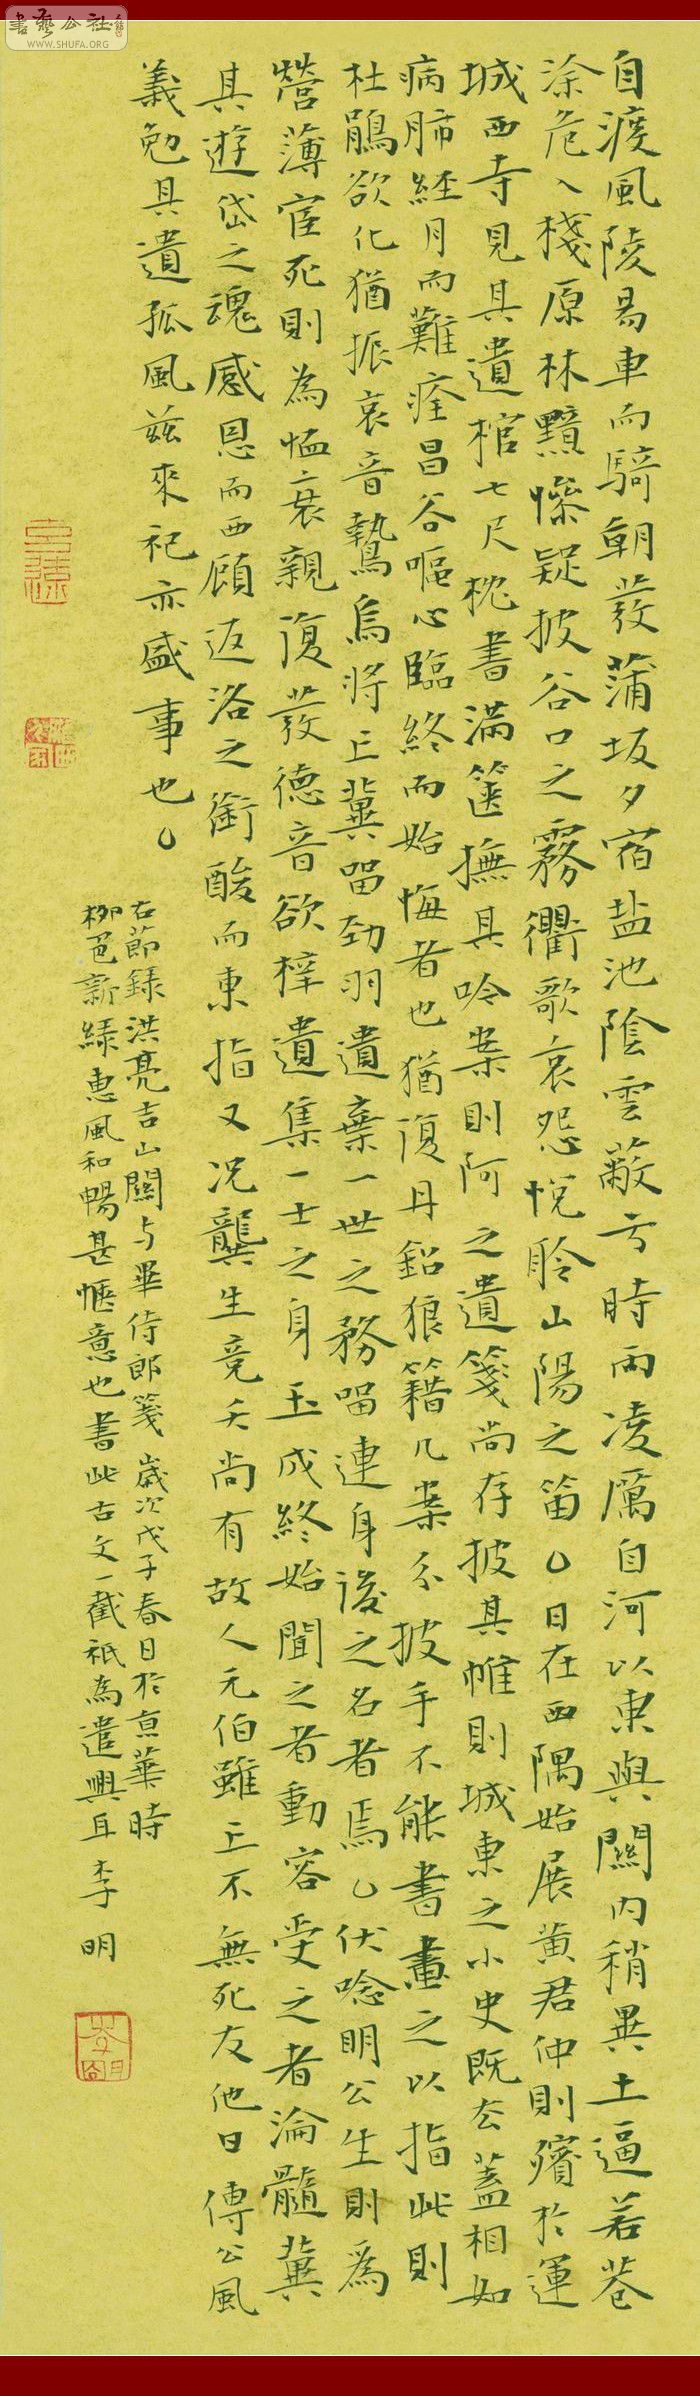 自渡風陵易車而騎朝發蒲坂夕宿盐池陰雲蔽亏時雨凌厲自河以東與關内稍異土逼若巷
涂危入棧原林黯慘疑披谷口之霧衢歌哀怨怳聆山陽之笛日在西隅始展黄君仲則殯於運
城西寺見其遺棺七尺枕書滿篋撫其吟案則阿之遺箋尚存披其帷則城東之小史既去蓋相如
病肺經月而難痊昌谷嘔心臨終而始悔者也猶復丹鉛狼籍几案分披手不能書畫之以指此則
杜鵑欲化猶振哀音鷙鳥將亡冀留劲羽遺棄一世之務留連身後之名者焉伏唸明公生則爲
營薄宦死則為恤衰親復發德音欲梓遺集一士之身玉成終始聞之者動容受之者淪髓冀
其遊岱之魂感恩而西顧返洛之銜酸而東指又况龔生竟夭尚有故人元伯雖亡不無死友他日傳公風
義勉其遺孤風兹來祀亦盛事也
右節録洪亮吉山關与畢侍郎箋 歲次戊子春日於京華時
柳色新緑惠風和暢甚愜意也書此古文一截祇為遣興耳李明
書藝公社
WWW.SHUFA.ORG